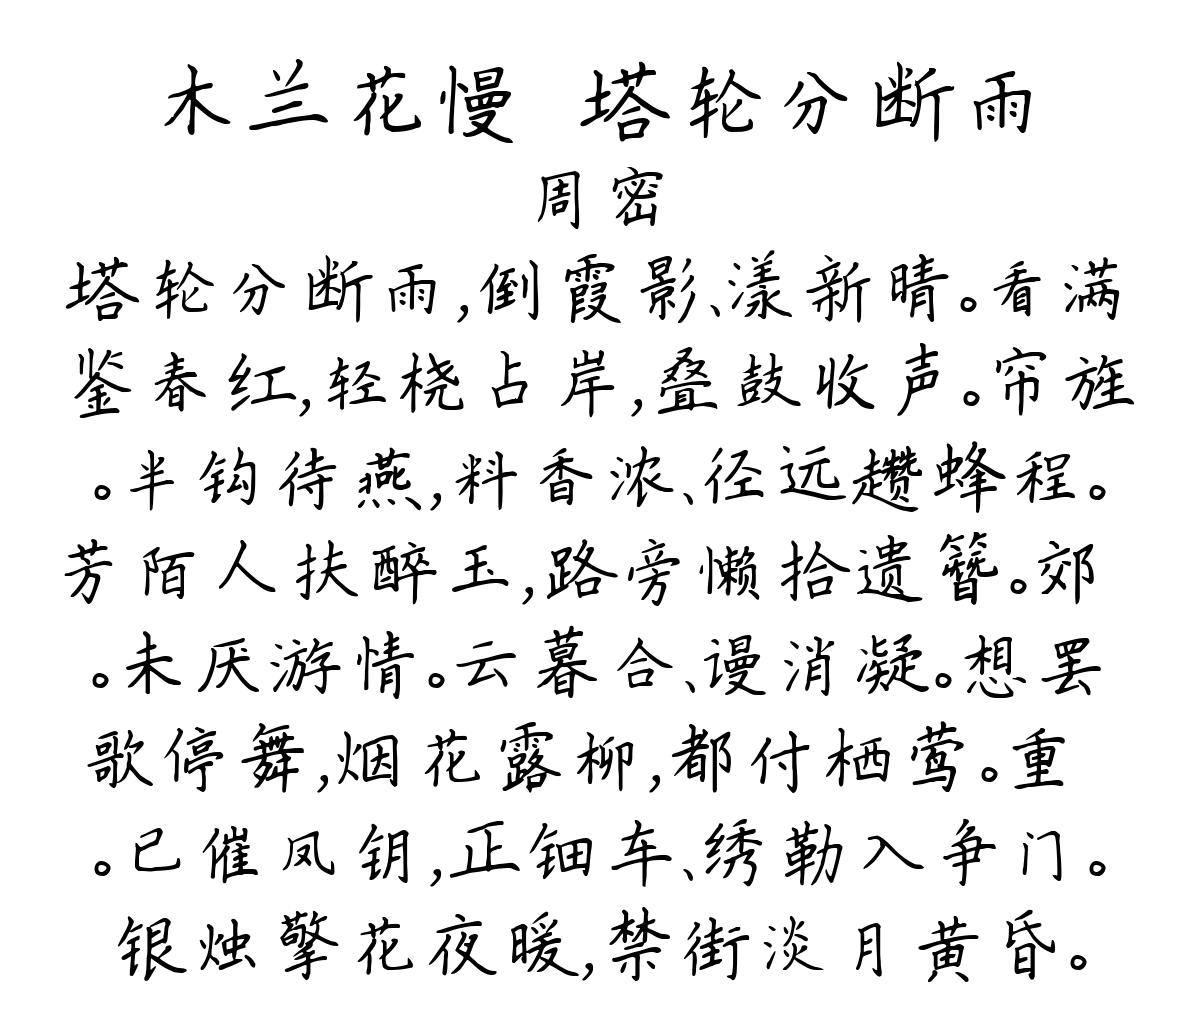 木兰花慢 塔轮分断雨
周密
塔轮分断雨,倒霞影、漾新晴。看满
鉴春红,轻桡占岸,叠鼓收声。帘旌
。半钩待燕,料香浓、径远趱蜂程。
芳陌人扶醉玉,路旁懒拾遗簪。郊
。未厌游情。云暮合、谩消凝。想罢
歌停舞,烟花露柳,都付栖莺。重
。已催凤钥,正钿车、绣勒入争门。
银烛擎花夜暖,禁街淡月黄昏。